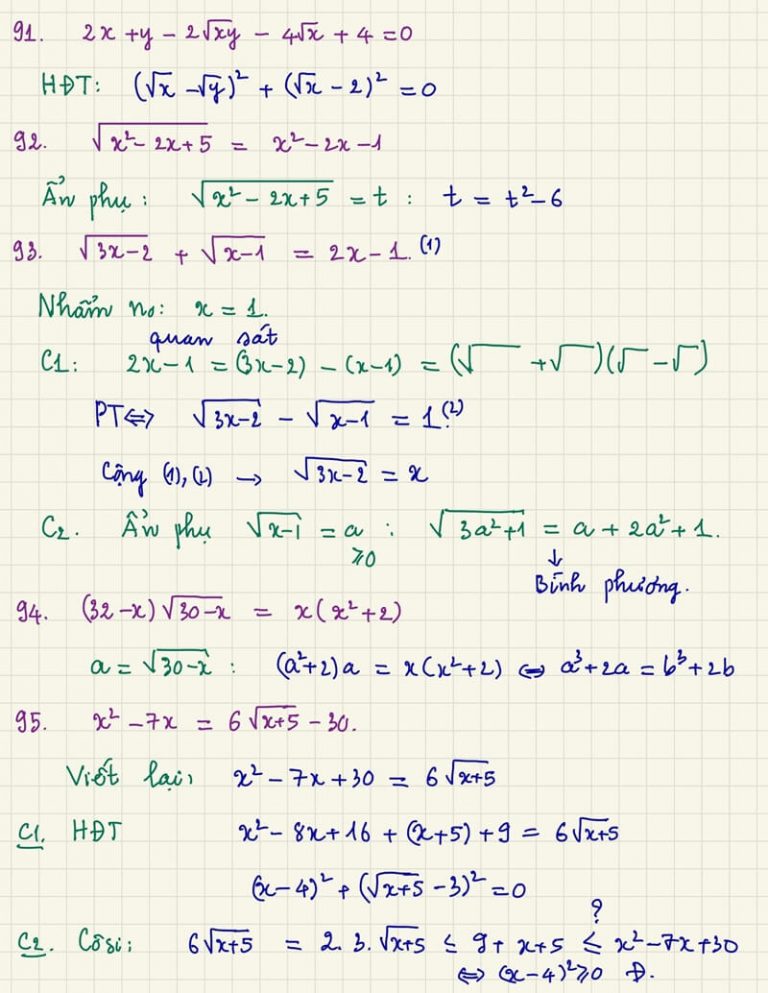 91. 2x + y - 2√xy - 4√x + 4 = 0
HĐT: (√x - √y)² + (√x - 2)² = 0
92. √x² - 2x + 5 = x² - 2x - 1
Ẩn phụ: √x² - 2x + 5 = t : t = t² - 6
93. √3x-2 + √x-1 = 2x - 1. (1)
Nhẩm no: x = 1.
quan sát
C1: 2x - 1 = (3x-2) - (x-1) = (√ + √ )(√ - √ )
PT ⇔ √3x-2 - √x-1 = 1. (2)
Cộng (1), (2) → √3x-2 = x
C2. Ẩn phụ √x-1 = a : √3a²+1 = a + 2a² + 1.
≥0 ↓
Bình phương.
94. (32-x)√30-x = x(x²+2)
a = √30-x : (a²+2)a = x(x²+2) ⇔ a³+2a = b³+2b
95. x² - 7x = 6√x+5 - 30.
Viết lại: x² - 7x + 30 = 6√x+5
C1. HĐT x² - 8x + 16 + (x+5) + 9 = 6√x+5
(x-4)² + (√x+5 - 3)² = 0
?
C2. Côsi: 6√x+5 = 2. 3. √x+5 ≤ 9 + x+5 ≤ x² - 7x + 30
⇔ (x-4)² ≥ 0 Đ.